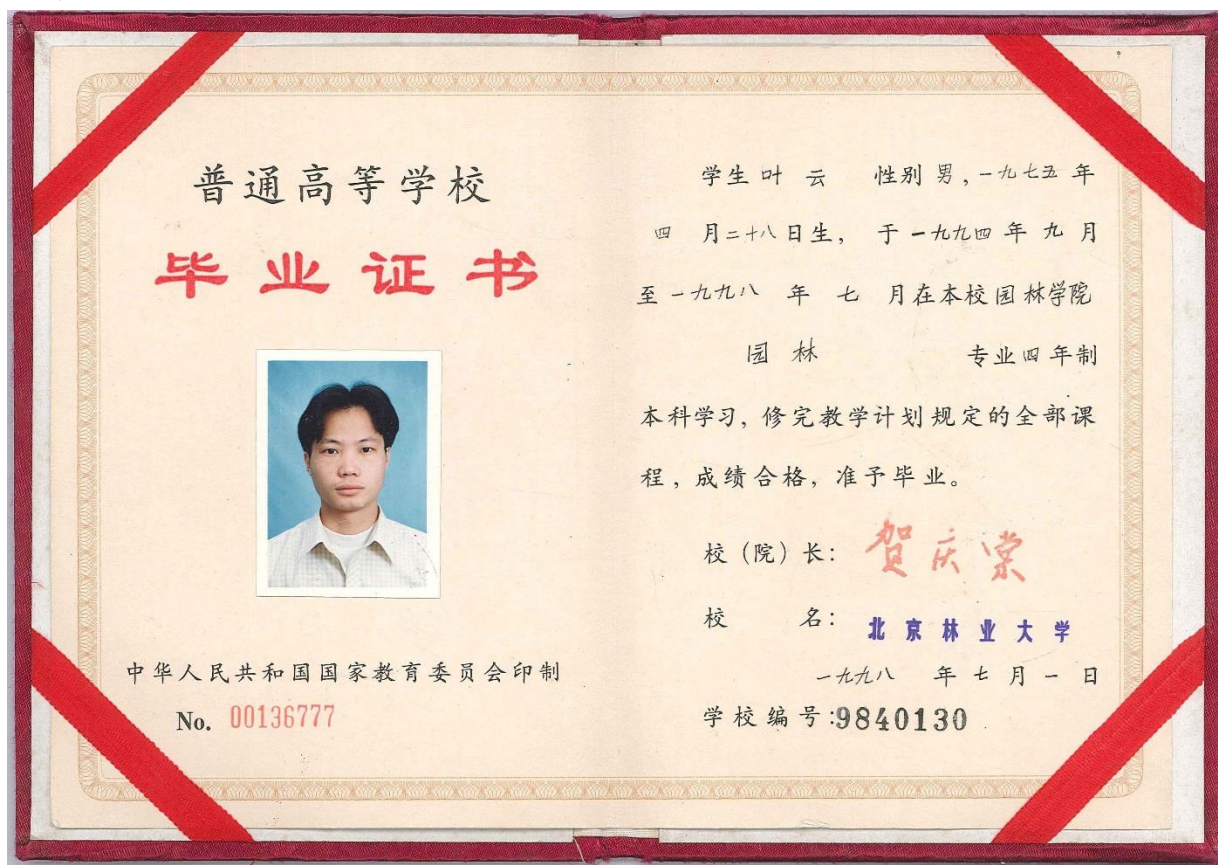 普通高等学校
毕业证书
中华人民共和国国家教育委员会印制
No. 00136777
学生叶云 性别男，一九七五年
四月二十八日生，于一九九四年九月
至一九九八年七月在本校园林学院
园林 专业四年制
本科学习，修完教学计划规定的全部课
程，成绩合格，准予毕业。
校（院）长：贺庆棠
校名：北京林业大学
一九九八年七月一日
学校编号:9840130